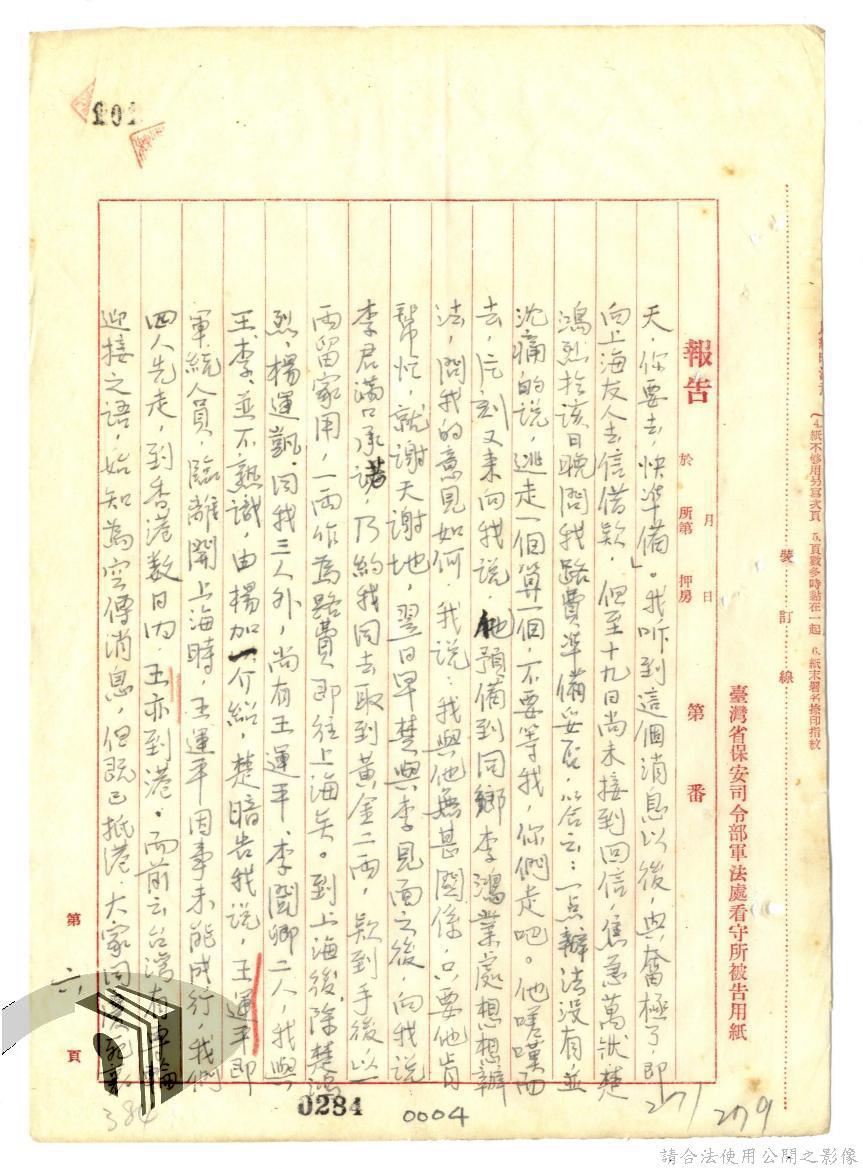 （4.紙不够用另寫次頁　5.頁數多時黏在一起　6.紙末署名捺印指紋
裝訂線
臺灣省保安司令部軍法處看守所被告用紙
報告　於　月　日　所第　押房　第　番
天，你要去，快準備」。我听到這個消息以後，興奮極了，即
向上海友人去信借款，但至十九日尚未接到回信，焦急萬狀楚
鴻烈於該日晚問我路費準備妥否，答云：一点辦法没有並
沈痛的说，逃走一個算一個，不要等我，你們走吧。他嗟嘆而
去，片刻又来向我说，他預備到同鄉李鴻業處想想辦
法，問我的意見如何，我说：我與他無甚関係，只要他肯
幫忙，就謝天謝地，翌日早楚與李見面之後，向我说
李君滿口承諾，乃約我同去取到黄金二兩，欵到手後以一
兩留家用，一兩作為路費，即往上海矣。到上海後，除楚鴻
烈，楊運凱，同我三人外，尚有王運平、李卿二人，我與
王、李，並不熟識，由楊加以介紹，楚暗告我说，王運平即
軍統人員，臨離開上海時，王運平因事未能成行，我們
四人先走，到香港数日内，王亦到港。而前云台灣有
迎接之語，始知為空傳消息，但既已抵港，大家同
第六頁
101
0284
0004
271
279
384
請合法使用公開之影像